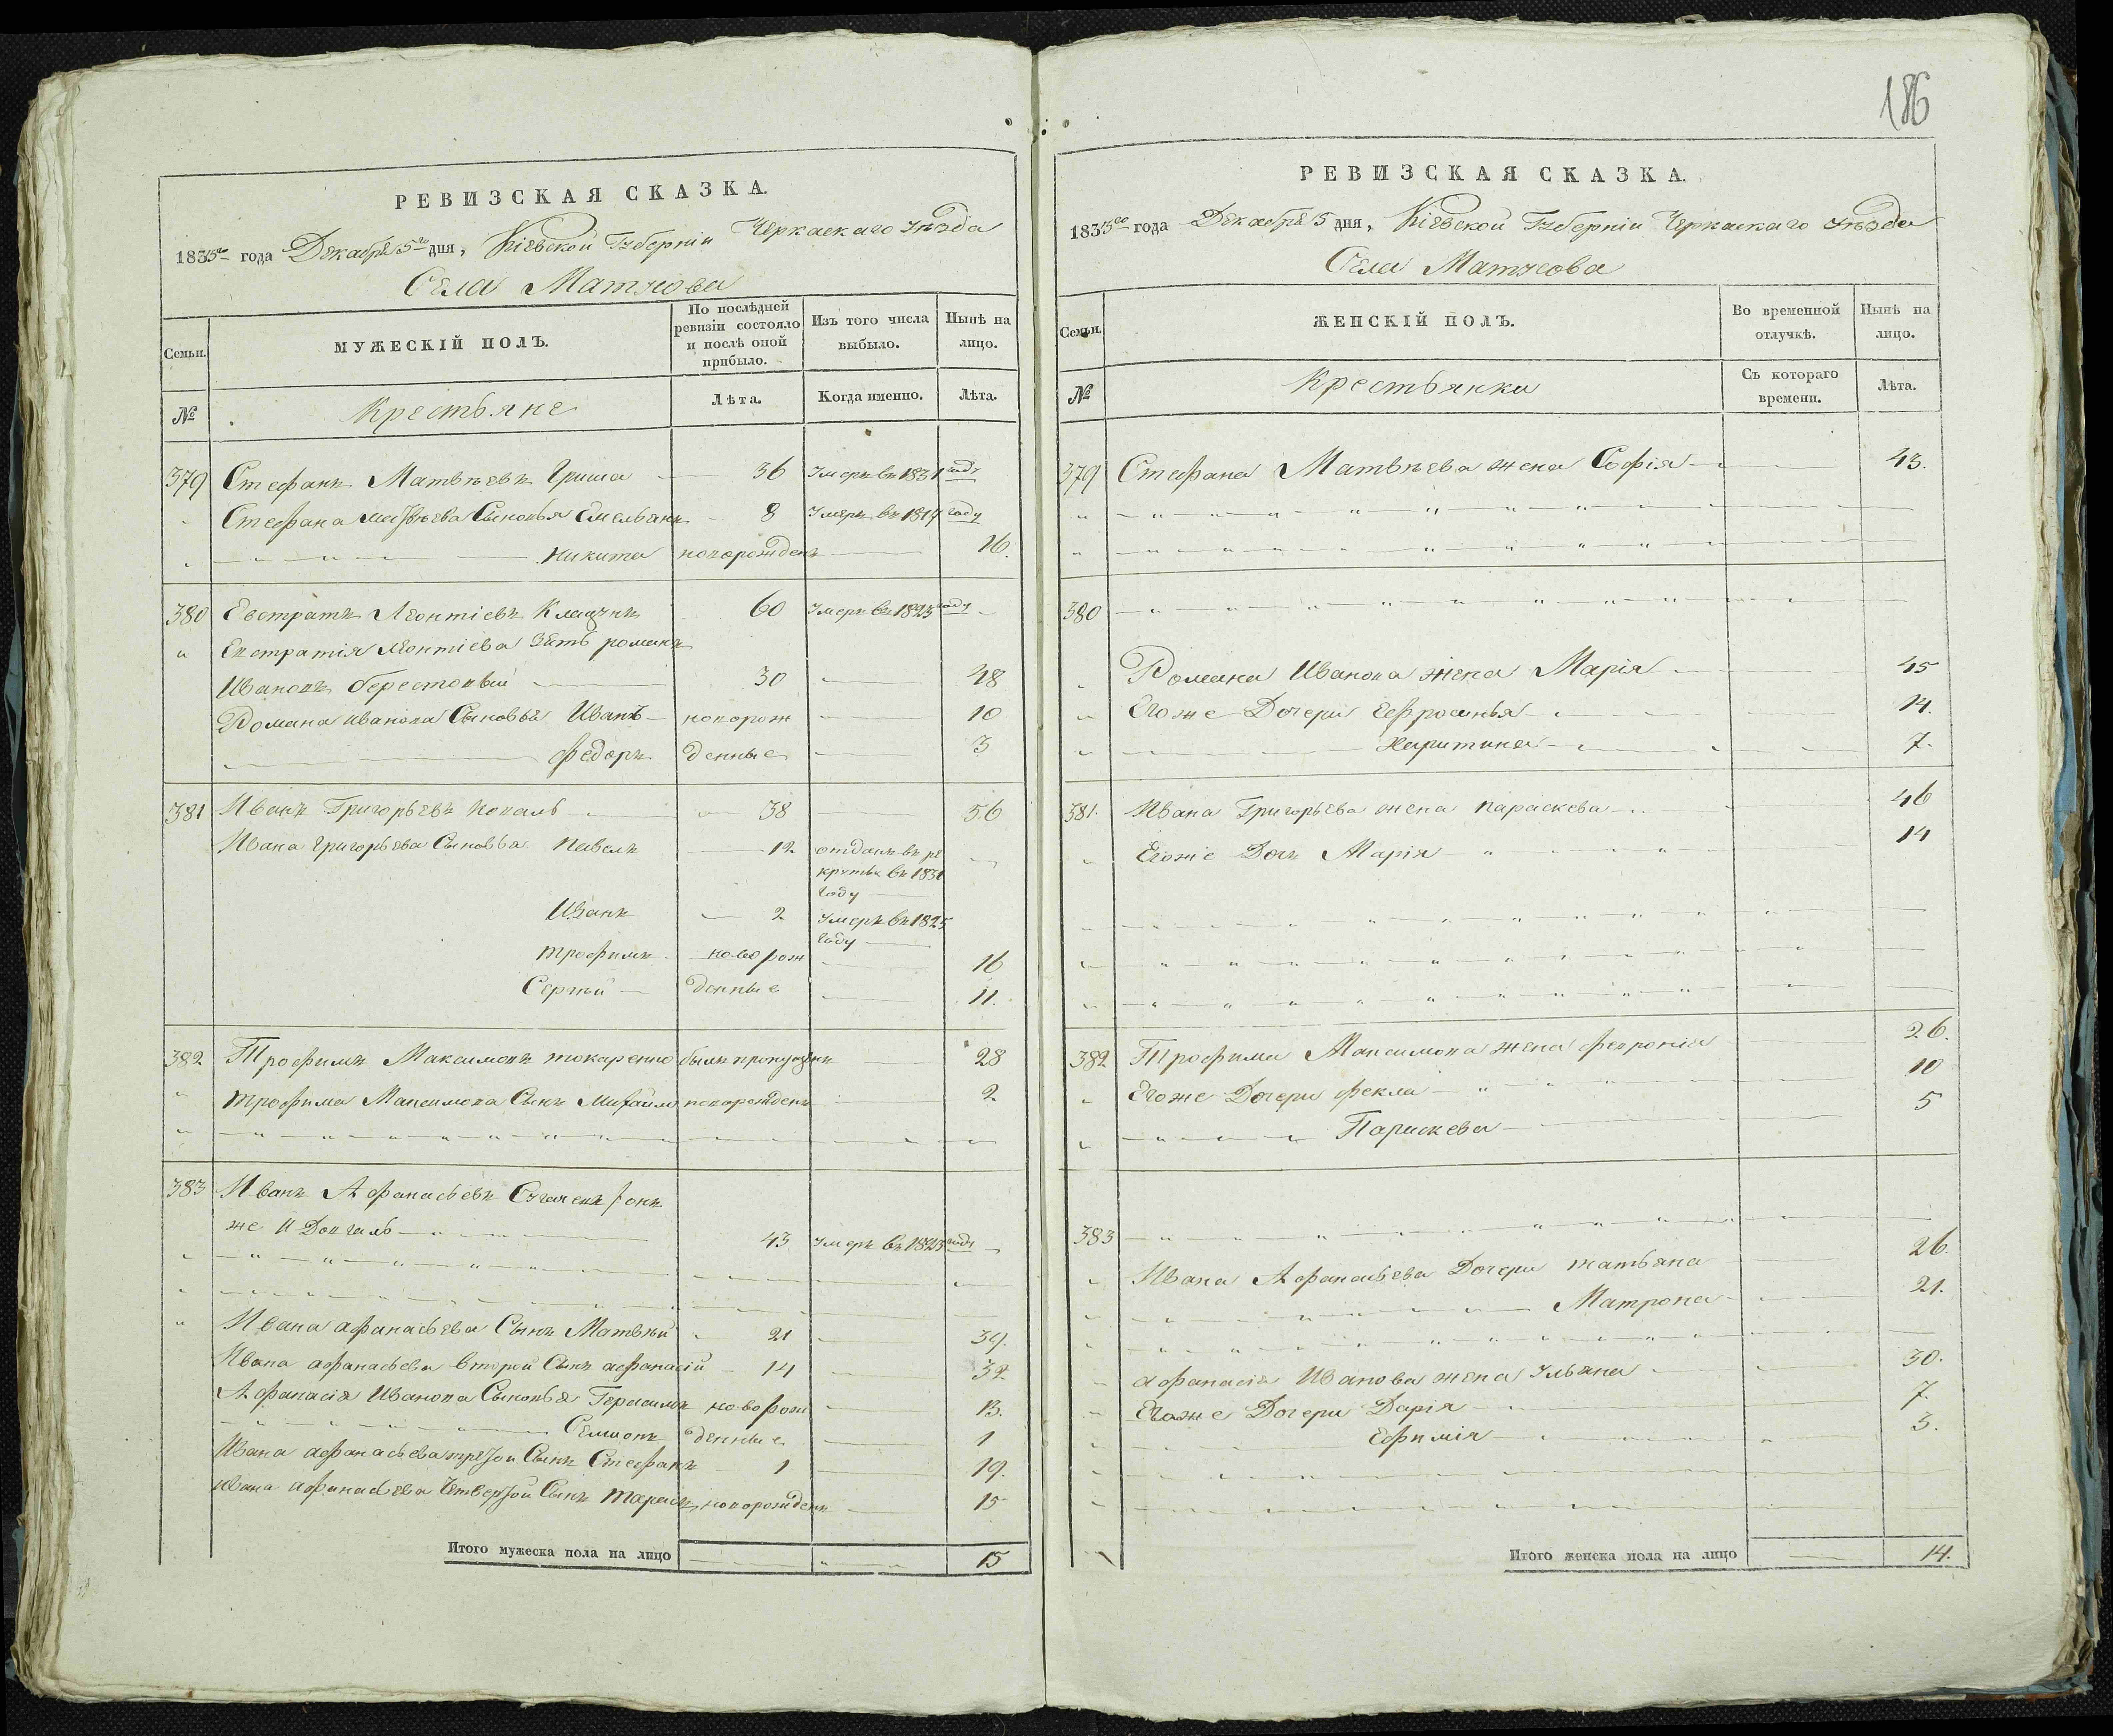 186
РЕВИЗСКАЯ СКАЗКА.
1835го года Декабря 5го дня, Кіевской Губерніи Черкаскаго Уѣзда
Села Матусова
Семьи.
МУЖЕСКІЙ ПОЛЪ.
По послѣдней ревизіи состояло и послѣ оной прибыло.
Изъ того числа выбыло.
Нынѣ на лицо.
№
Крестьяне
Лѣта.
Когда именно.
Лѣта.
379 Стефанъ Матвѣевъ Гриша 36 Умеръ въ 1831 году
Стефана Матвѣева Сыновья Емельянъ 8 Умеръ въ 1817 году
Никита новорожденъ 16.
380 Евстратъ Леонтіевъ 60 Умеръ въ 1823 году
Евстратія Леонтіева Зять романъ
Ивановъ берестовый 30 48
Романа иванова Сыновья Иванъ новорож 10
федоръ денные 3
381 Иванъ Григорьевъ Коваль 38 56
Ивана григорьева Сыновья Павелъ 12 отданъ въ ре
круты въ 1831
году
Иванъ 2 Умеръ въ 1825
году
трофимъ новорож 16
Сергѣй денные 11.
382 Трофимъ Максимовъ токаренко былъ пропущенъ 28
трофима Максимова Сынъ Михаилъ новорожденъ 2
383 Иванъ Афанасьевъ онъ
же и Довгаль 43 Умеръ въ 1823 году
Ивана афанасьева Сынъ Матвѣй 21 39.
Ивана афанасьева второй Сынъ афанасій 14 32
Афанасія Иванова Сыновья Герасимъ новорож 13.
Семионъ денные 1
Ивана афанасьева третой Сынъ Стефанъ 1 19.
Ивана афанасьева Четвертой Сынъ тарасъ новорожденъ 15
Итого мужеска пола на лицо 15
РЕВИЗСКАЯ СКАЗКА.
1835го года Декабря 5 дня, Кіевской Губерніи Черкаскаго Уѣзда
Села Матусова
Семьи.
ЖЕНСКІЙ ПОЛЪ.
Во временной отлучкѣ.
Нынѣ на лицо.
№
Крестьянки
Съ котораго времени.
Лѣта.
379 Стефана Матвѣева жена Софія 43.
380
Романа Иванова жена Марія 45
Егоже Дочери Ефросинья 14.
Харитина 7.
381. Ивана Григорьева жена параскева 46
Егоже Дочъ Марія 14
382 Трофима Максимова жена февронія 26.
Егоже Дочери фекла 10
Параскева 5
383
Ивана Афанасьева Дочери татьяна 26.
Матрона 21.
афанасія Иванова жена Ульяна 30.
Егоже Дочери Дарія 7.
Ефимія 3.
Итого женска пола на лицо 14.